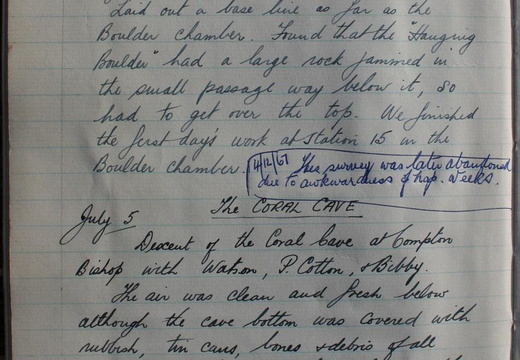 Laid out a base line as far as the
Boulder chamber. Found that the "Hanging
Boulder" had a large rock jammed in
the small passage way below it, so
had to get over the top. We finished
the first day's work at Station 15 in the
Boulder chamber.
4/12/67 This survey was later abandoned
due to awkwardness of
The CORAL CAVE
July 5
Descent of the Coral Cave at Compton
Bishop with Watson, P. Cotton, & Bibby.
The air was clean and fresh below
although the cave bottom was covered with
rubbish, tin cans, bones & debris of all